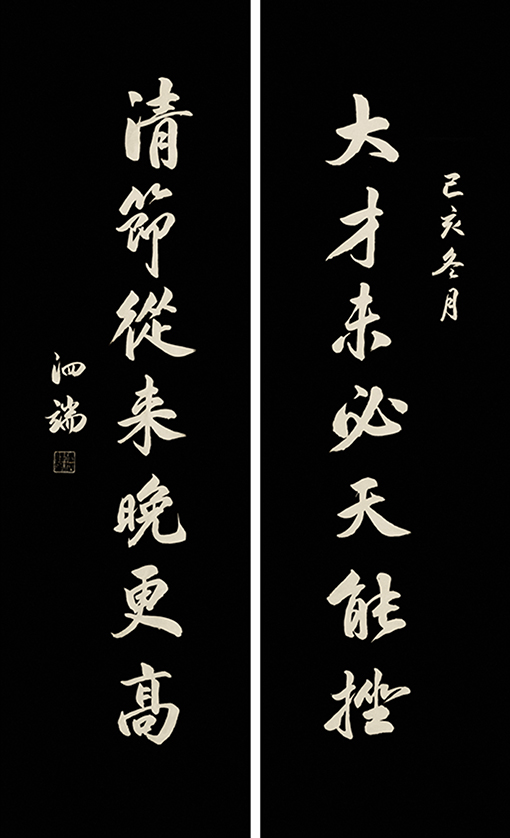 己亥冬月
大才未必天能挫
清節從来晚更高
泗端